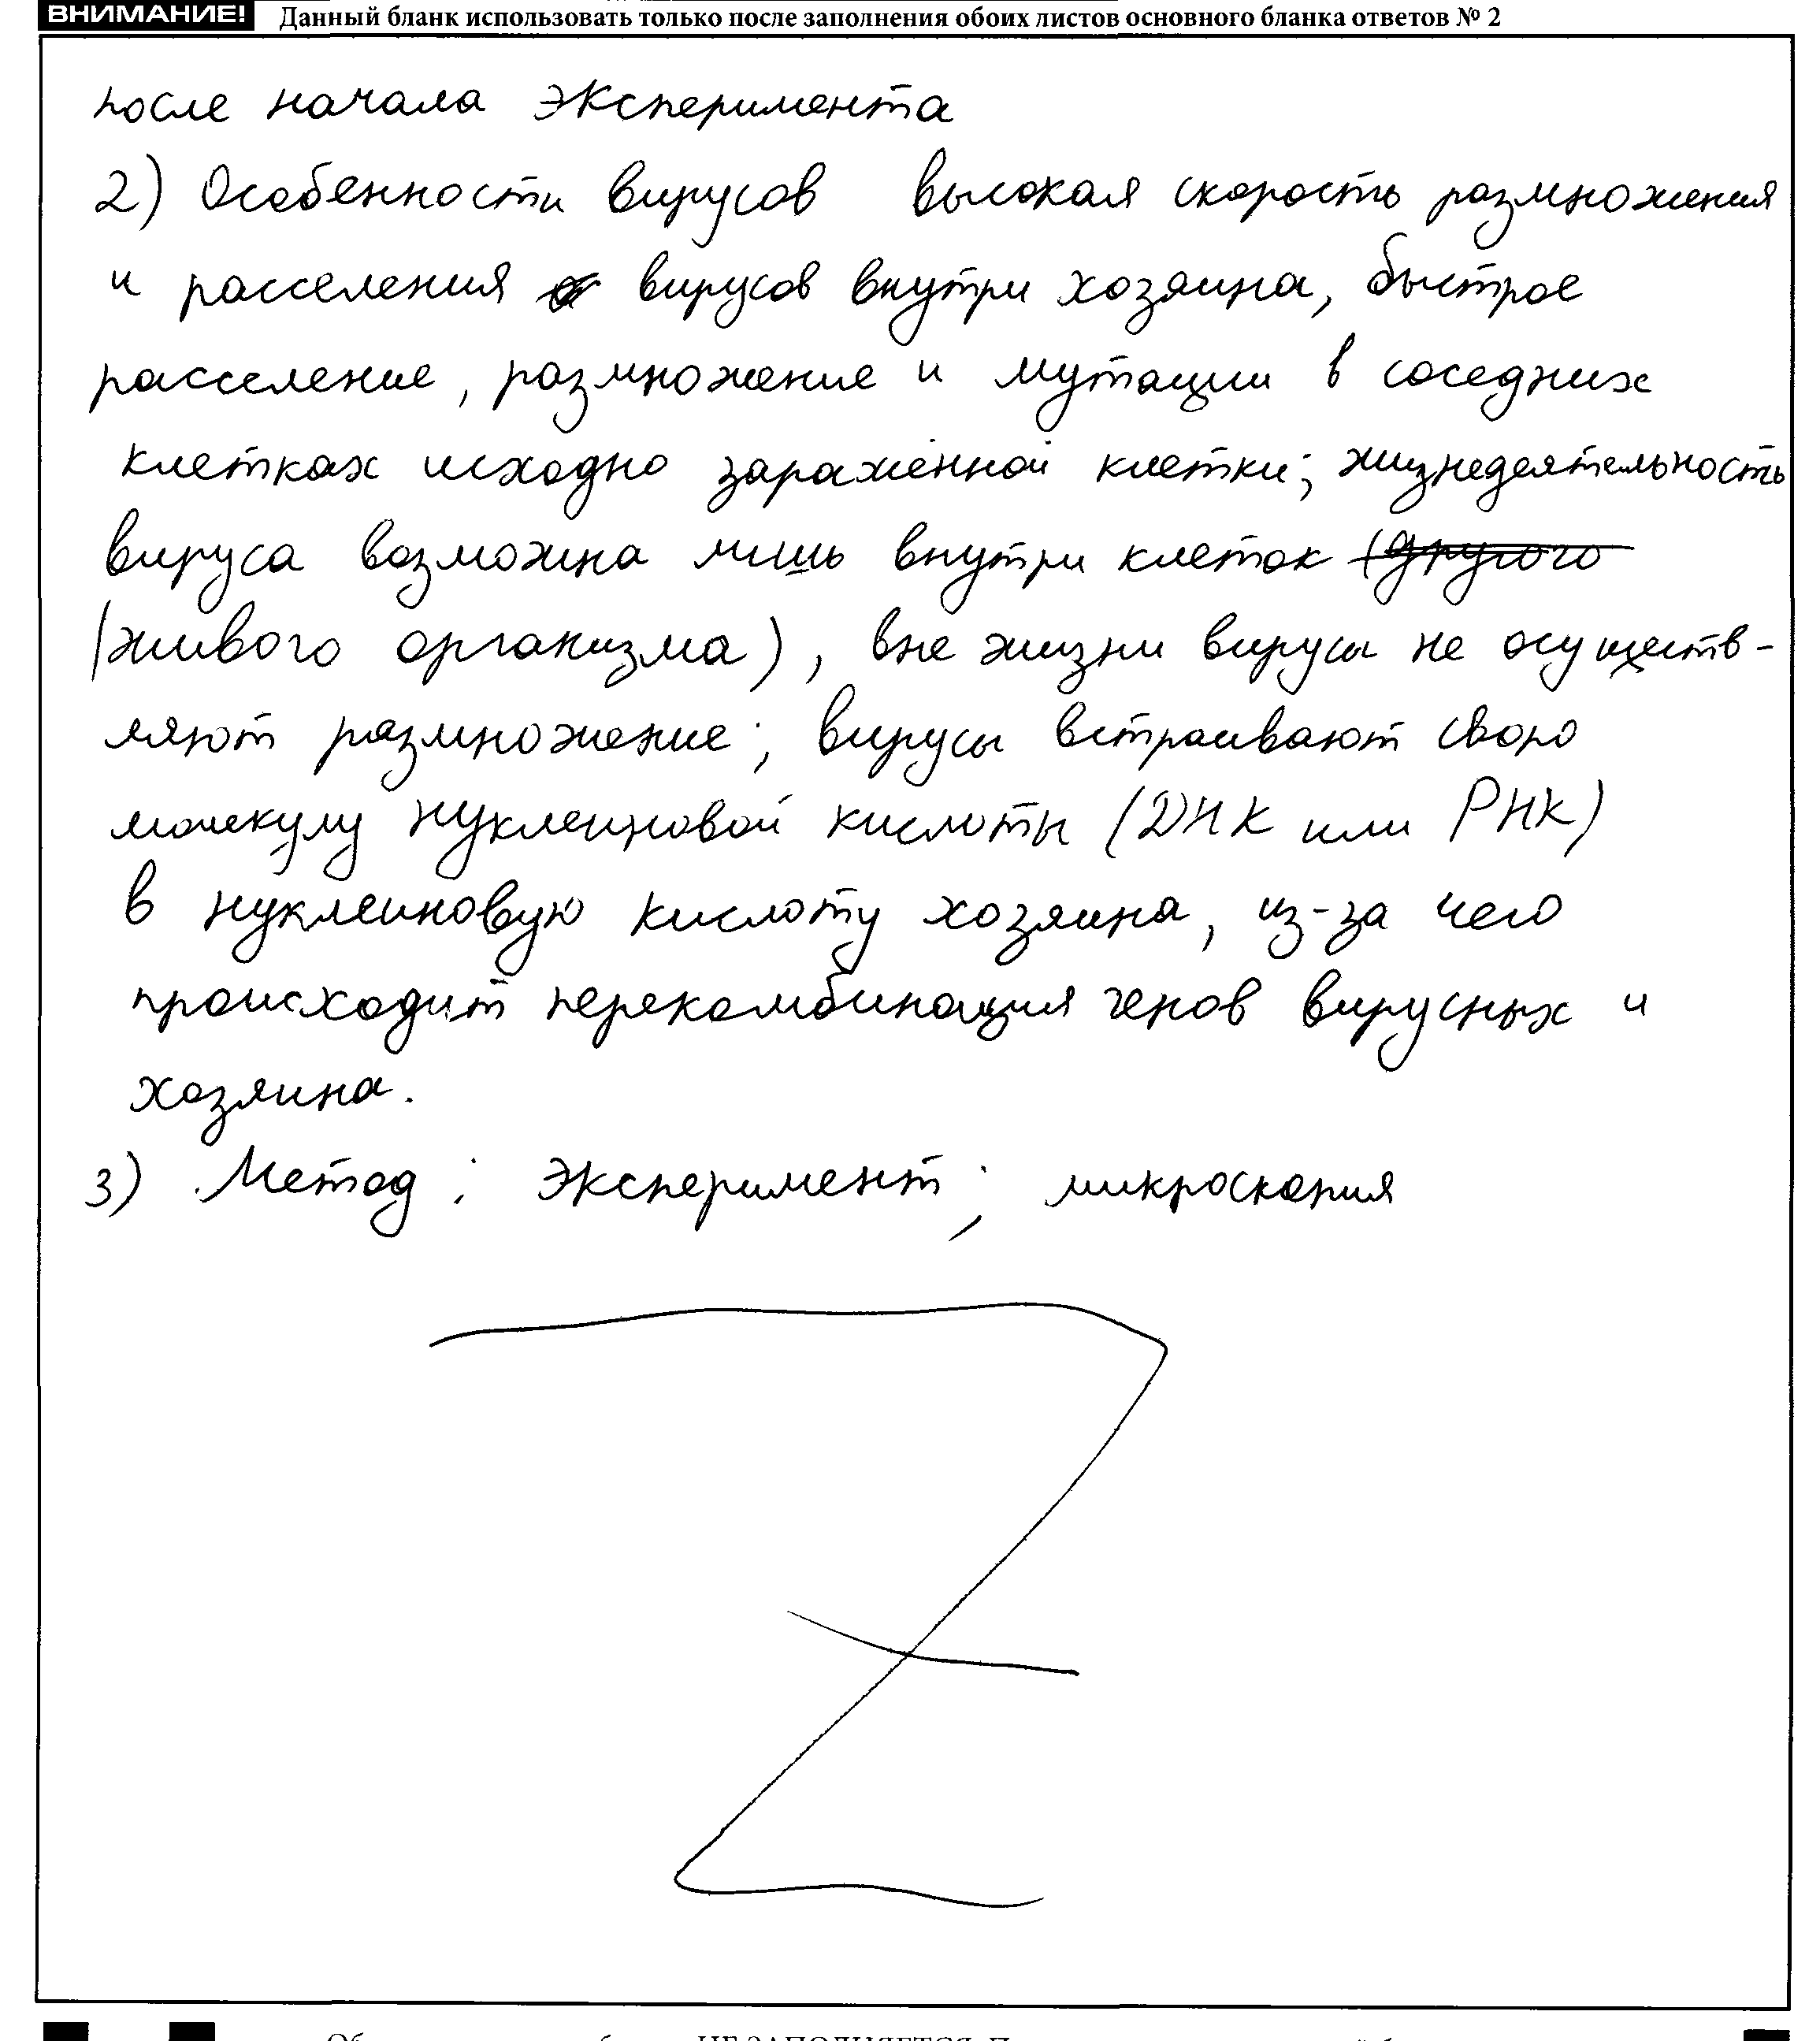 ВНИМАНИЕ! Данный бланк использовать только после заполнения обоих листов основного бланка ответов № 2
после начала эксперимента
2) Особенности вирусов высокая скорость размножения
и расселения вирусов внутри хозяина, быстрое
расселение, размножение и мутации в соседних
клетках исходно заражённой клетки; жизнедеятельность
вируса возможна лишь внутри клеток (другого
(живого организма), вне жизни вирусы не осуществ-
ляют размножение; вирусы встраивают свою
молекулу нуклеиновой кислоты (ДНК или РНК)
в нуклеиновую кислоту хозяина, из-за чего
происходит перекомбинация генов вирусных и
хозяина.
3) Метод: эксперимент; микроскопия